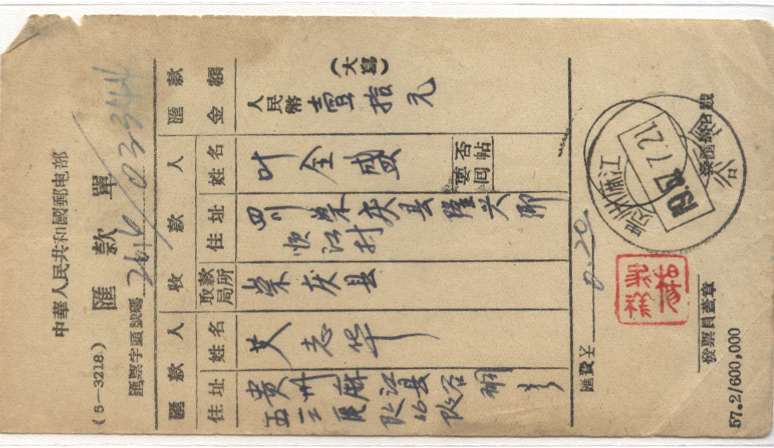 (5—3218.)
中華人民共和國郵电部
匯款單
匯票字頭號碼
匯款金額
人民幣
(大寫)
壹拾元
收款人
姓名
叶全盛
要否回帖
住址
四川崇庆县隆兴乡
顺江村
取款局所
崇庆县
匯款人
姓名
艾志华
住址
贵州麻江县
匯費
0.20
麻江
7.21
發票員蓋章
57.2/600,000